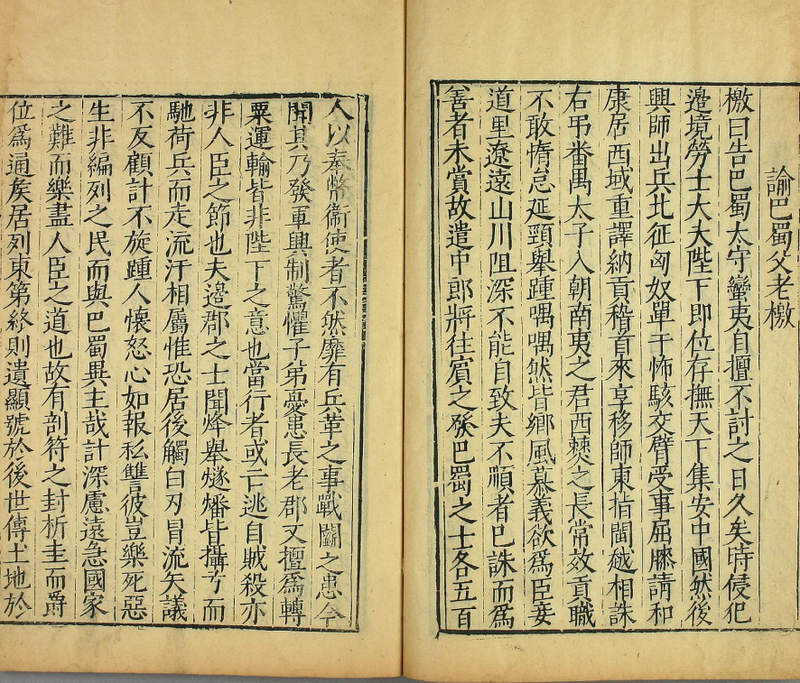 諭巴蜀父老檄
檄曰告巴蜀太守蠻夷自擅不討之日久矣時侵犯
邉境勞士大夫陛下即位存撫天下集安中國然後
興師出兵北征匈奴單于怖駭交臂受事屈膝請和
康居西域重譯納貢稽首來享移師東指閩越相誅
右弔番禺太子入朝南夷之君西僰之長常效貢職
不敢惰怠延頸舉踵喁喁然皆鄉風慕義欲爲臣妾
道里遼遠山川阻深不能自致夫不順者已誅而爲
善者未賞故遣中郎將往賓之發巴蜀之士各五百
人以奉幣衞使者不然靡有兵革之事戰鬭之患今
聞其乃發軍興制驚懼子弟憂患長老郡又擅爲轉
粟運輸皆非陛下之意也當行者或亡逃自賊殺亦
非人臣之節也夫邉郡之士聞烽舉燧燔皆攝弓而
馳荷兵而走流汗相屬惟恐居後觸白刃冒流矢議
不反顧計不旋踵人懷怒心如報私讐彼豈樂死惡
生非編列之民而與巴蜀異主哉計深慮遠急國家
之難而樂盡人臣之道也故有剖符之封析圭而爵
位爲通矦居列東第終則遺顯號於後世傳土地於